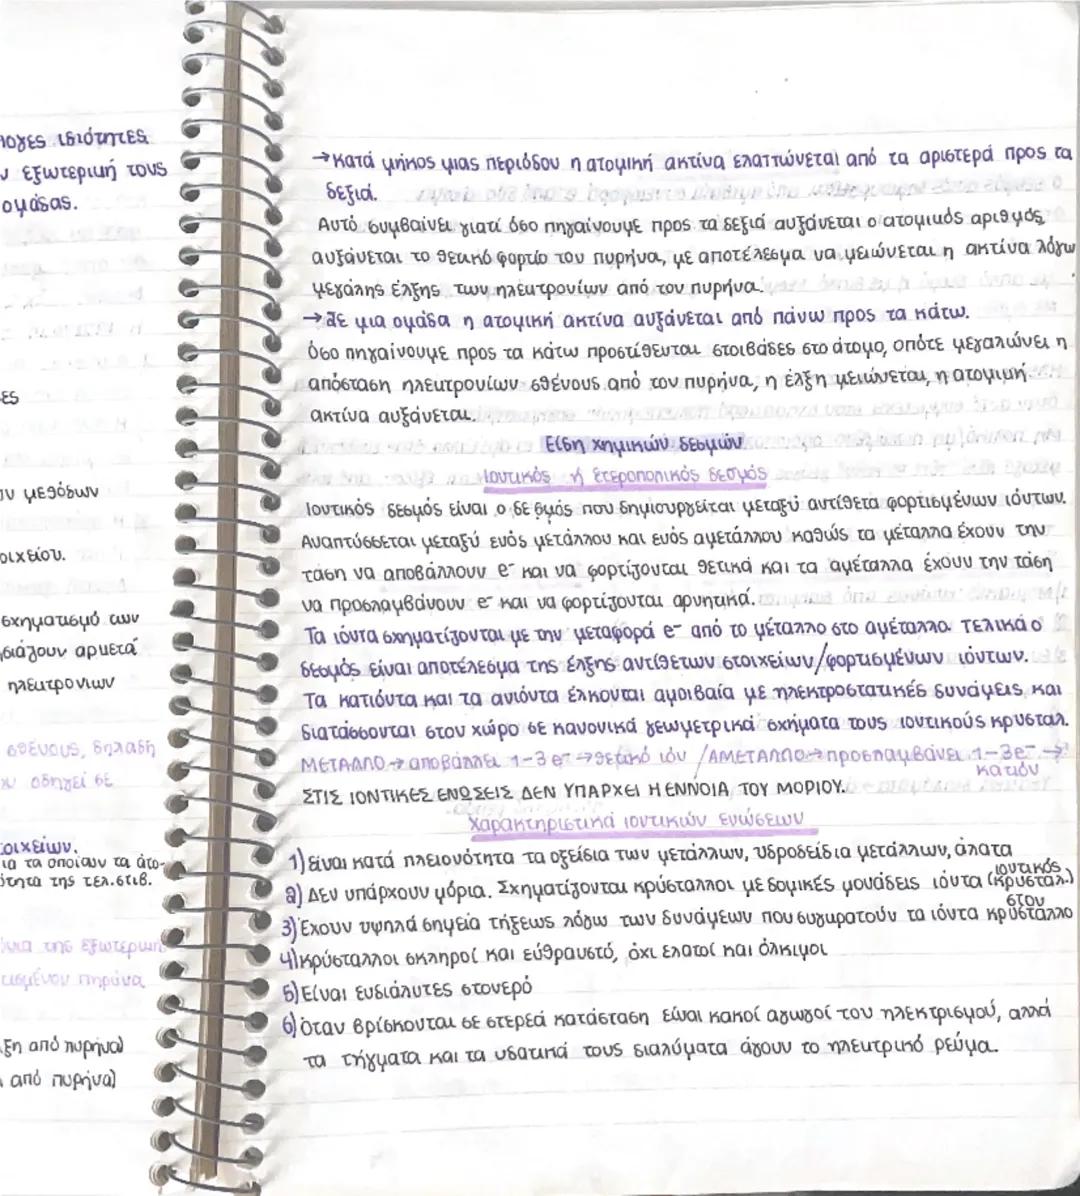 λογες ιδιότητες
ν εξωτερική τους
ομάδας.
ες
ων μεθόδων
οιχείου.
σχηματισμό των
ηλεκτρονίων
σθένους, δηλαδή
οδηγεί σε
οιχείων.
ια τα οποίων τα άτο-
ότητα της τελ.στιβ.
της εξωτερική
τισμένου πυρήνα
ξη από πυρήνα)
από πυρήνα)
→Κατά μήκος μιας περιόδου η ατομική ακτίνα ελαττώνεται από τα αριστερά προς τα
δεξιά.
Αυτό συμβαίνει γιατί όσο πηγαίνουμε προς τα δεξιά αυξάνεται ο ατομικός αριθμός,
αυξάνεται το θετικό φορτίο του πυρήνα, με αποτέλεσμα να μειώνεται η ακτίνα λόγω
μεγάλης έλξης των ηλεκτρονίων από τον πυρήνα.
→Σε μια ομάδα η ατομική ακτίνα αυξάνεται από πάνω προς τα κάτω.
Όσο πηγαίνουμε προς τα κάτω προστίθενται στοιβάδες στο άτομο, οπότε μεγαλώνει η
απόσταση ηλεκτρονίων σθένους από τον πυρήνα, η έλξη μειώνεται, η ατομική
ακτίνα αυξάνεται.
Είδη χημικών δεσμών
Ιοντικός ή ετεροπολικός δεσμός
Ιοντικός δεσμός είναι ο δεσμός που δημιουργείται μεταξύ αντίθετα φορτισμένων ιόντων.
Αναπτύσσεται μεταξύ ενός μετάλλου και ενός αμετάλλου καθώς τα μέταλλα έχουν την
τάση να αποβάλλουν e⁻ και να φορτίζονται θετικά και τα αμέταλλα έχουν την τάση
να προσλαμβάνουν e⁻ και να φορτίζονται αρνητικά.
Τα ιόντα σχηματίζονται με την μεταφορά e⁻ από το μέταλλο στο αμέταλλο. Τελικά ο
δεσμός είναι αποτέλεσμα της έλξης αντίθετων στοιχείων/φορτισμένων ιόντων.
Τα κατιόντα και τα ανιόντα έλκονται αμοιβαία με ηλεκτροστατικές δυνάμεις και
διατάσσονται στον χώρο σε κανονικά γεωμετρικά σχήματα τους ιοντικούς κρυσταλ.
ΜΕΤΑΛΛΟ→αποβάλλει 1-3e⁻→θετικό ιόν/ΑΜΕΤΑΛΛΟ→προσλαμβάνει 1-3e⁻→
κατιόν
ΣΤΙΣ ΙΟΝΤΙΚΕΣ ΕΝΩΣΕΙΣ ΔΕΝ ΥΠΑΡΧΕΙ Η ΕΝΝΟΙΑ ΤΟΥ ΜΟΡΙΟΥ.
Χαρακτηριστικά ιοντικών ενώσεων
1) Είναι κατά πλειονότητα τα οξείδια των μετάλλων, υδροξείδια μετάλλων, άλατα
2) Δεν υπάρχουν μόρια. Σχηματίζονται κρύσταλλοι με δομικές μονάδεις ιόντα (ιοντικός κρυσταλ.)
3) Έχουν υψηλά σημεία τήξεως λόγω των δυνάμεων που συγκρατούν τα ιόντα στον κρύσταλλο
4) κρύσταλλοι σκληροί και εύθραυστό, όχι ελατοί και όλκιμοι
5) Είναι ευδιάλυτες στο νερό
6) Όταν βρίσκονται σε στερεά κατάσταση είναι κακοί αγωγοί του ηλεκτρισμού, αλλά
τα τήγματα και τα υδατικά τους διαλύματα άγουν το ηλεκτρικό ρεύμα.